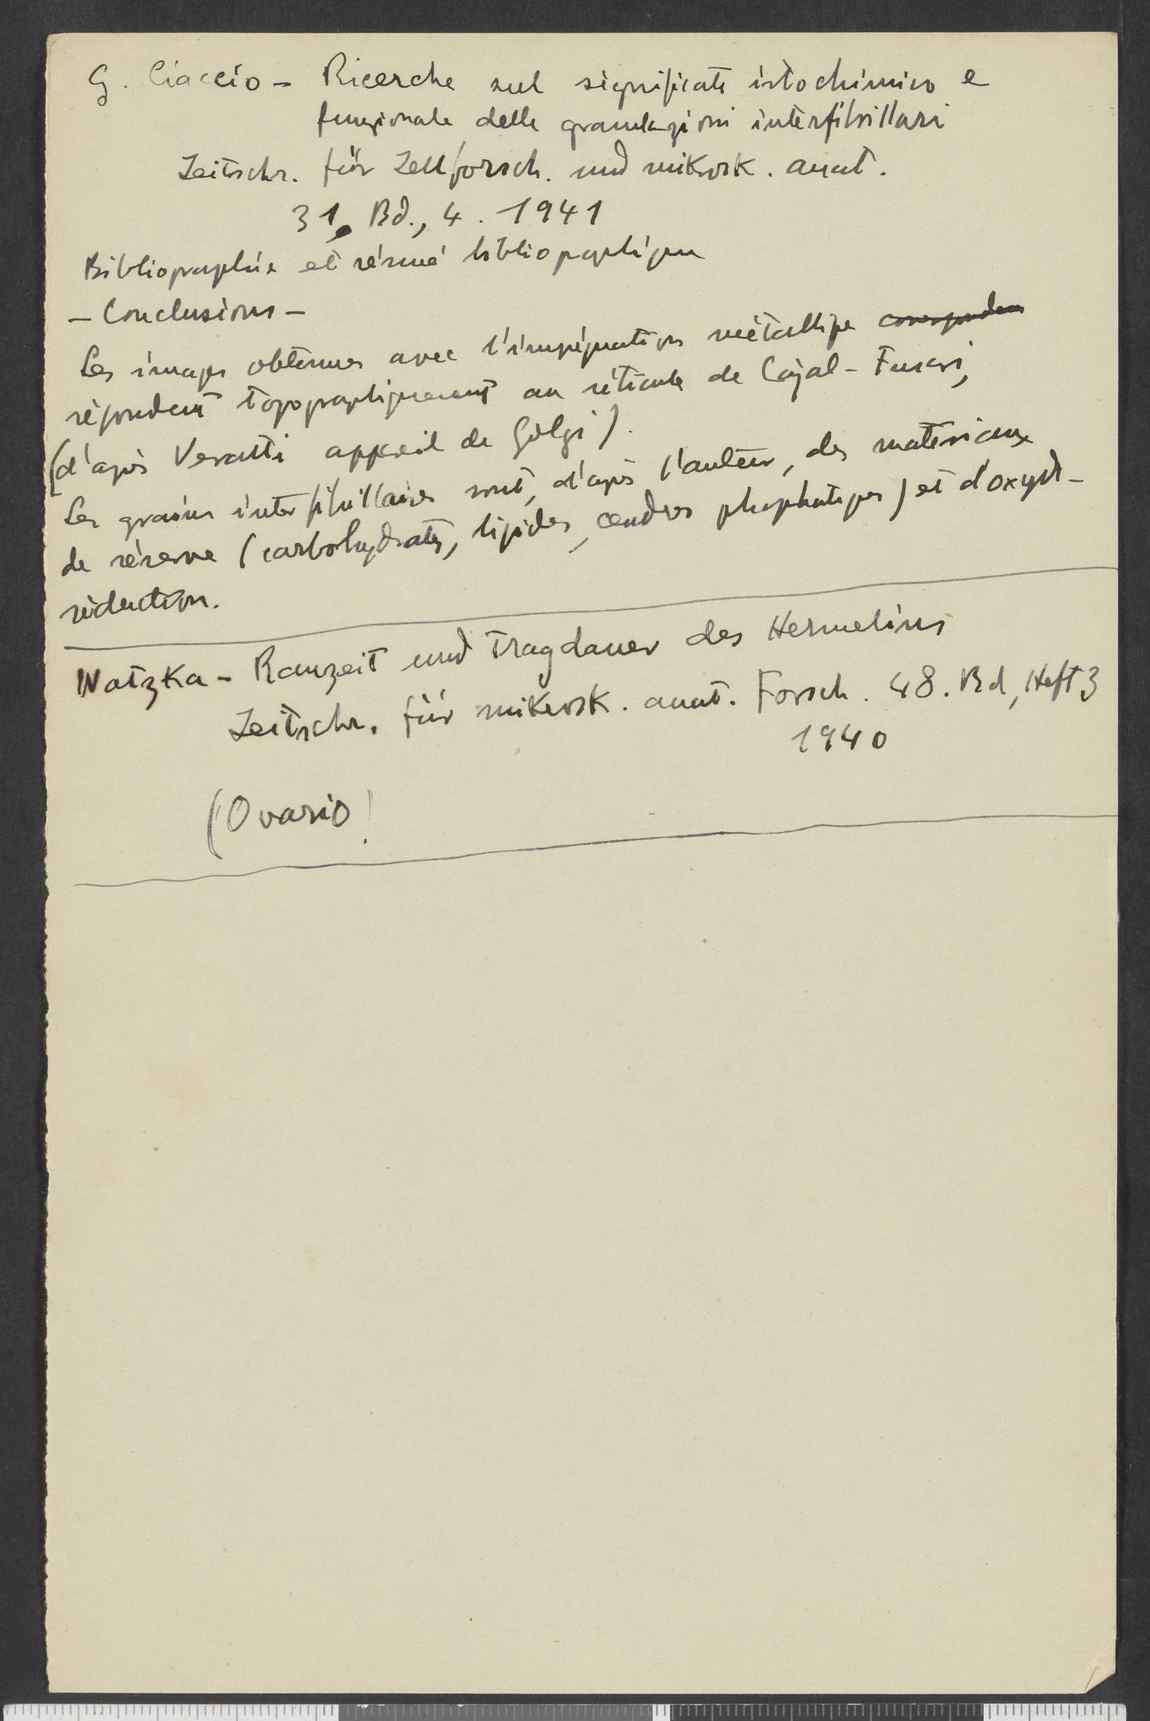 G. Ciaccio - Ricerche sul significato istochimico e
funzionale delle granulazioni interfibrillari
Zeitschr. für Zellforsch. und mikrosk. anat.
31, Bd., 4. 1941
Bibliographie et résumé bibliographique
- Conclusions -
Les images obtenues avec l'imprégnation métallique correspondens
répondent topographiquement au réticule de Cajal - Fusari,
(d'après Veratti appareil de Golgi).
Les grains interfibrillaires sont, d'après l'auteur, des matériaux
de réserve (carbohydrates, lipides, cendres phosphatiques) et d'oxyd-
réduction.
Watzka - Ranzeit und Tragdauer des Hermelins
Zeitschr. für mikrosk. anat. Forsch. 48. Bd, Heft 3
1940
(Ovario!